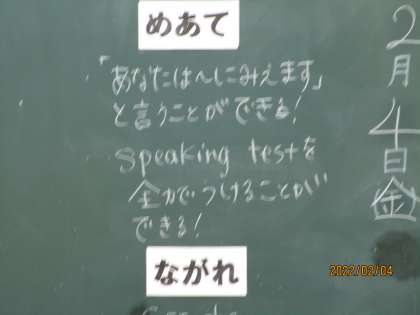 2月4日(金)
めあて
「あなたは〜にみえます」
と言うことができる!
speaking testを
全力でうけることが
できる!
ながれ
2022/02/04